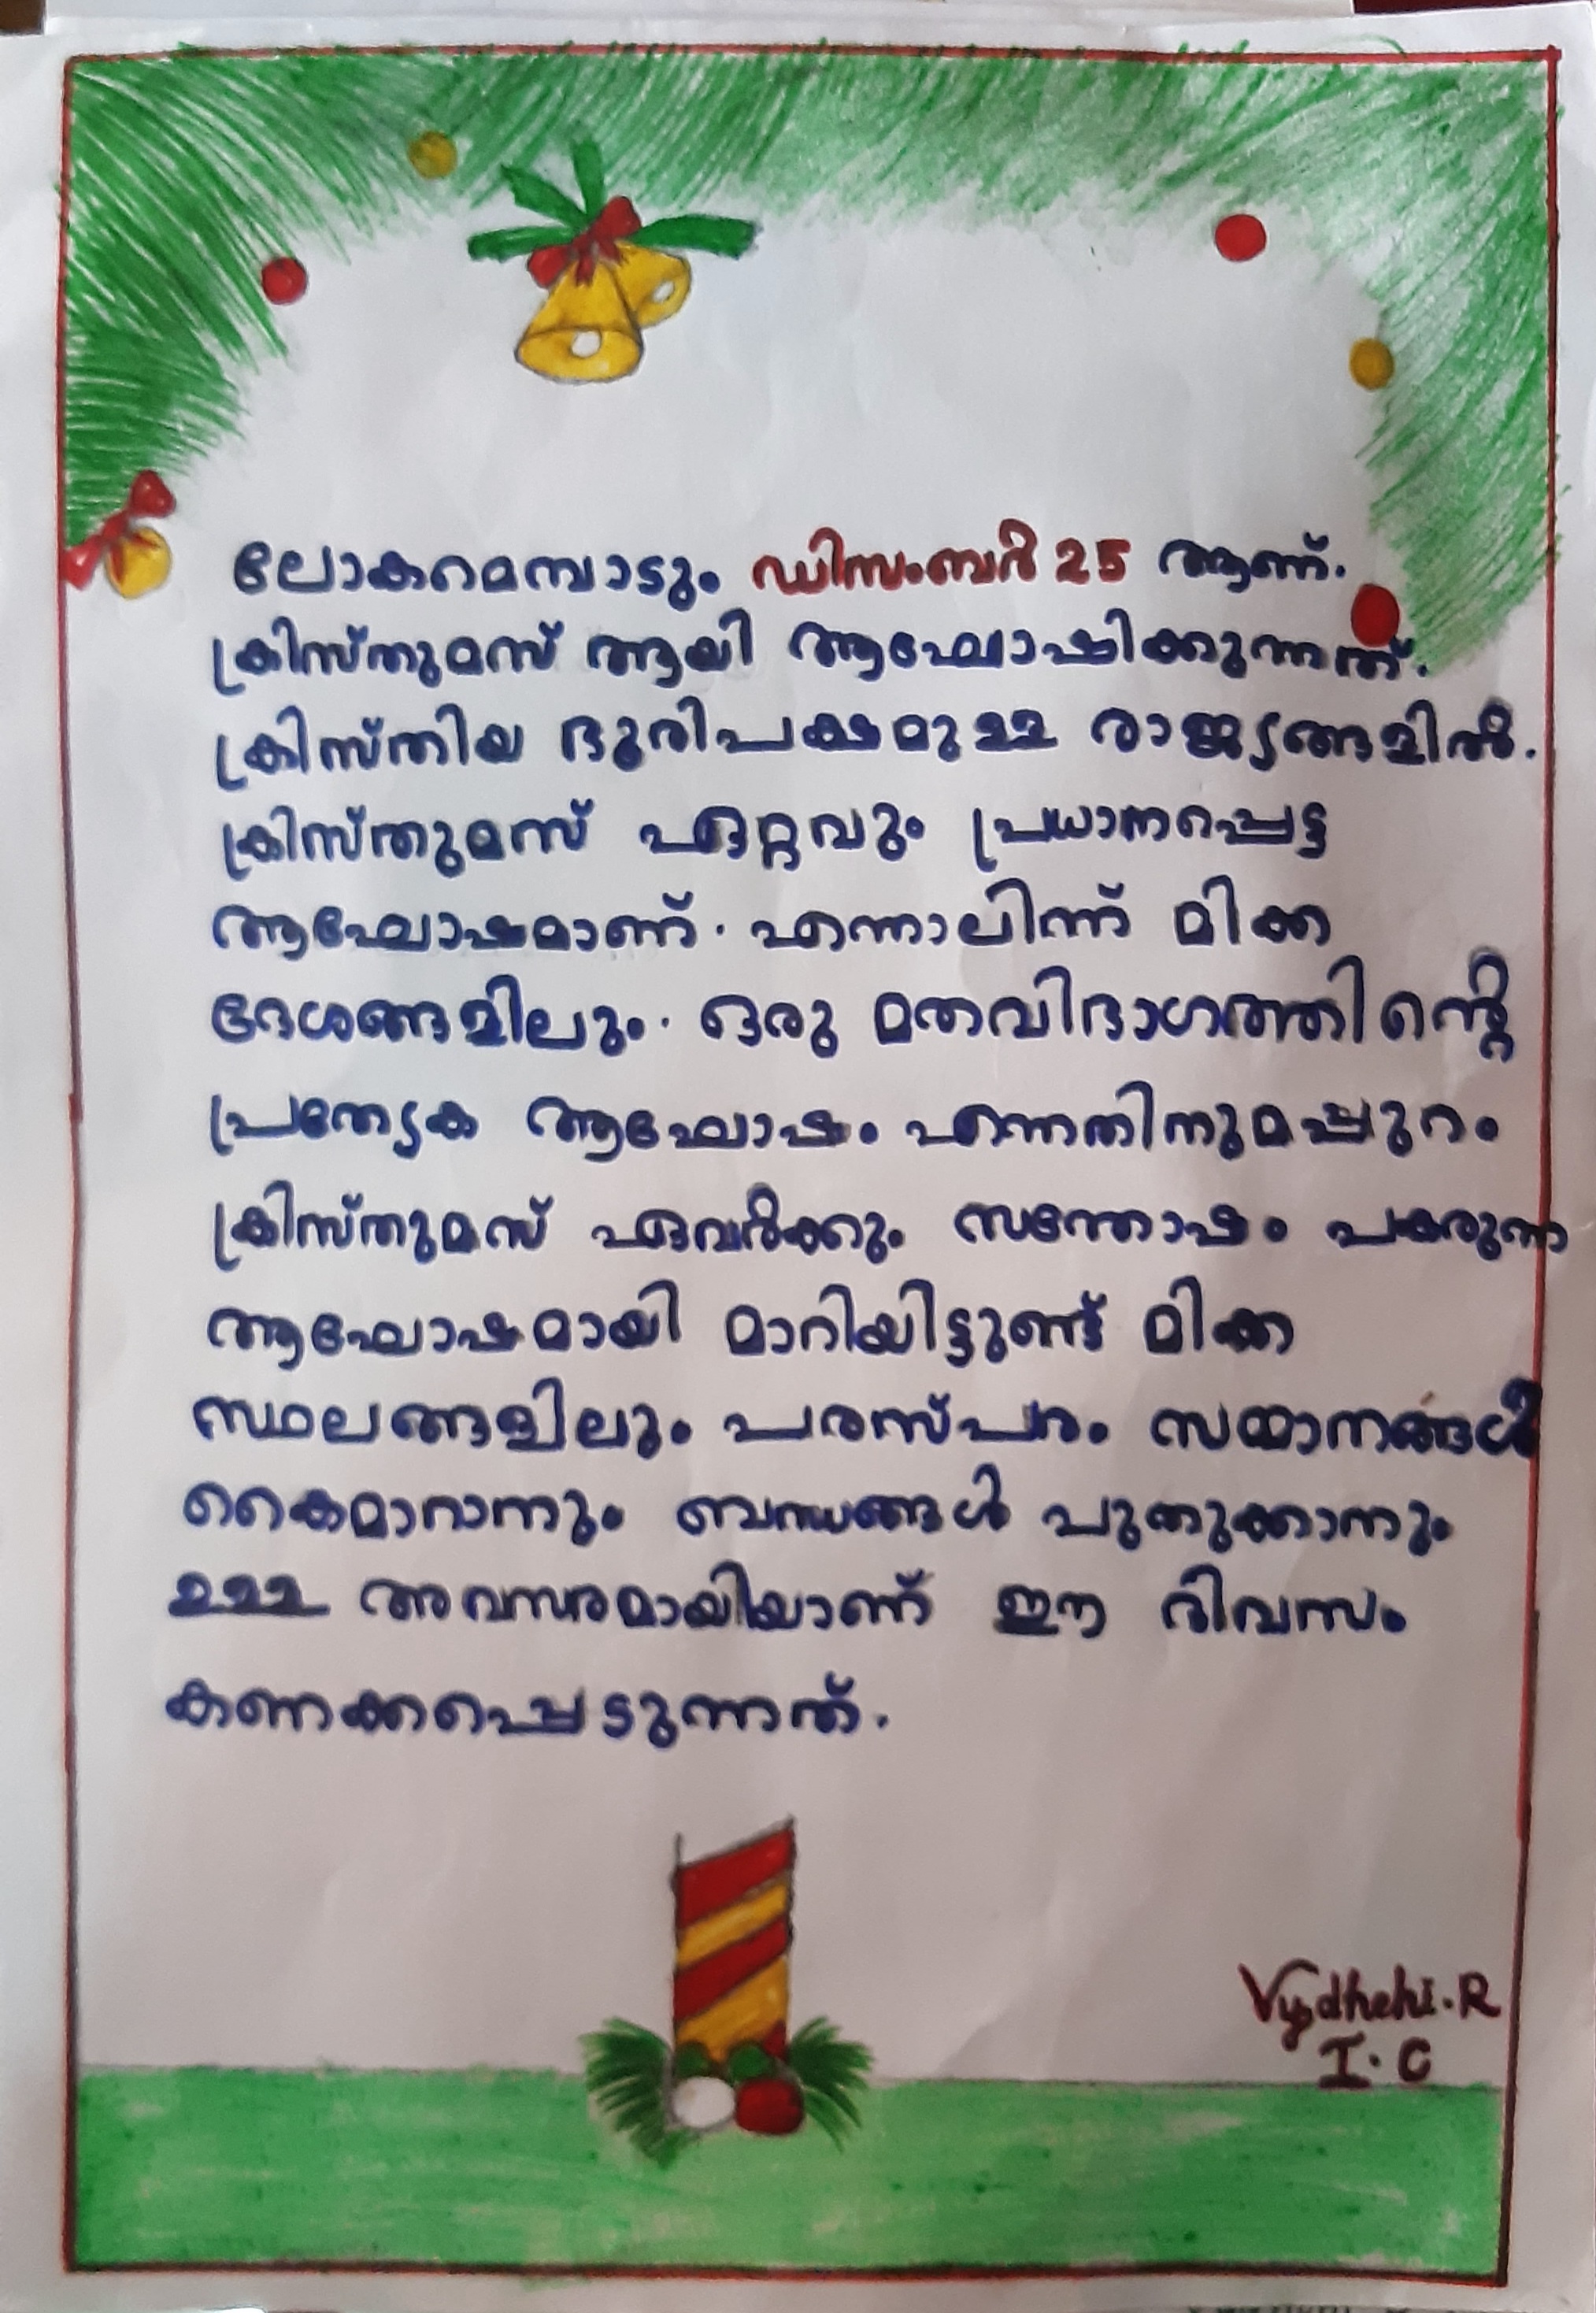 ലോകമെമ്പാടും ഡിസംബർ 25 ആണ്.
ക്രിസ്തുമസ് ആയി ആഘോഷിക്കുന്നത്.
ക്രിസ്തിയ ഭൂരിപക്ഷമുള്ള രാജ്യങ്ങളിൽ.
ക്രിസ്തുമസ് ഏറ്റവും പ്രധാനപ്പെട്ട
ആഘോഷമാണ്. എന്നാലിന്ന് മിക്ക
ദേശങ്ങളിലും. ഒരു മതവിഭാഗത്തിന്റെ
പ്രത്യേക ആഘോഷം എന്നതിനുമപ്പുറം
ക്രിസ്തുമസ് ഏവർക്കും സന്തോഷം പകരുന്ന
ആഘോഷമായി മാറിയിട്ടുണ്ട് മിക്ക
സ്ഥലങ്ങളിലും പരസ്പരം സമ്മാനങ്ങൾ
കൈമാറാനും ബന്ധങ്ങൾ പുതുക്കാനും
ഉള്ള അവസരമായിയാണ് ഈ ദിവസം
കണക്കപ്പെടുന്നത്.
Vydhehi.R
I.C